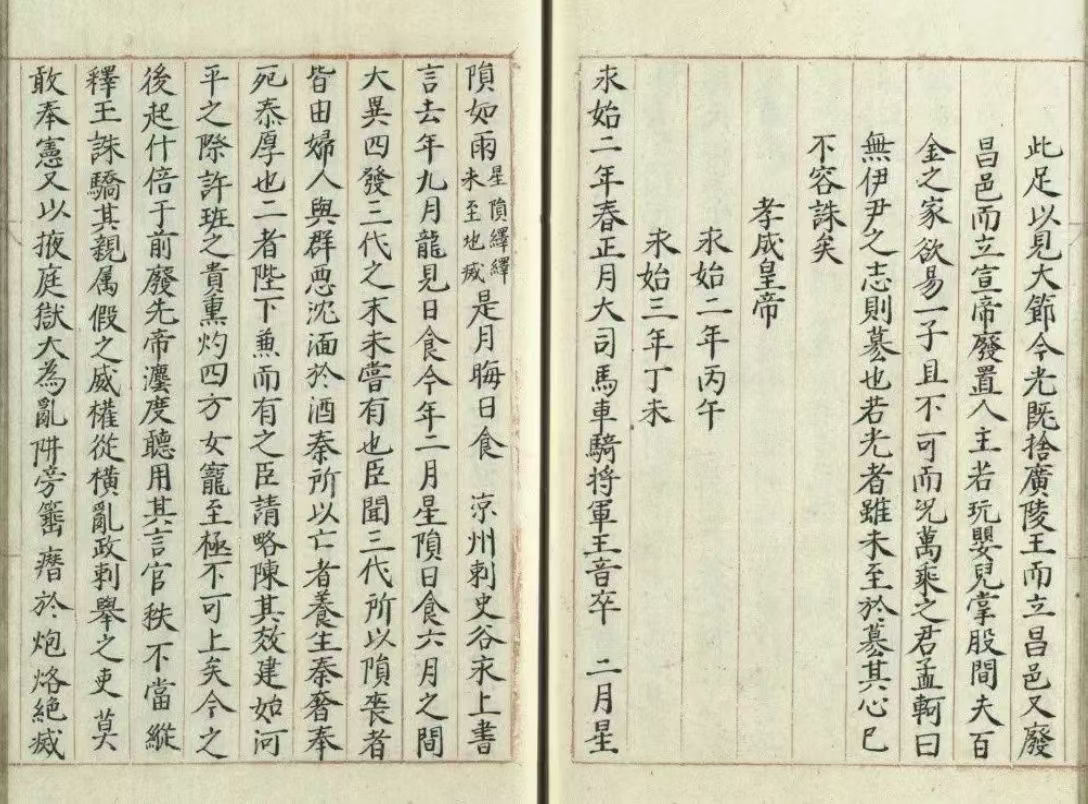 此足以見大節今光既捨廣陵王而立昌邑又廢
昌邑而立宣帝廢置人主若玩嬰兒掌股間夫百
金之家欲易一子且不可而况萬乘之君孟軻曰
無伊尹之志則篡也若光者雖未至於篡其心已
不容誅矣
孝成皇帝
永始二年丙午
永始三年丁未
永始二年春正月大司馬車騎将軍王音卒 二月星
隕如雨星隕繹繹未至地滅是月晦日食 涼州刺史谷永上書
言去年九月龍見日食今年二月星隕日食六月之間
大異四發三代之末未嘗有也臣聞三代所以隕喪者
皆由婦人與群惡沈湎於酒秦所以亡者養生泰奢奉
死泰厚也二者陛下兼而有之臣請略陳其效建始河
平之際許班之貴熏灼四方女寵至極不可上矣今之
後起什倍于前廢先帝灋度聽用其言官秩不當縱
釋王誅驕其親属假之威權從橫亂政刺舉之吏莫
敢奉憲又以掖庭獄大為亂阱旁箠瘠於炮烙絕滅